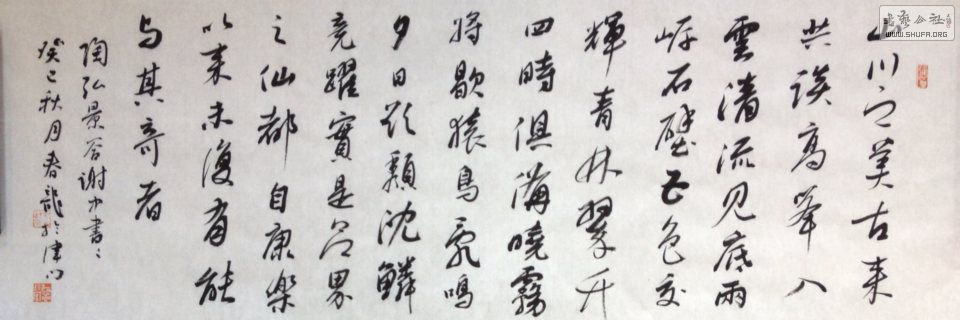 山川之美古来
共談高峯入
雲清流見底兩
岸石壁五色交
輝青林翠竹
四時俱備曉霧
將歇猿鳥亂鳴
夕日欲頹沈鱗
競躍實是欲界
之仙都自康樂
以来未復有能
与其奇者
陶弘景答謝中書〻
癸巳秋月春龍於津门
書藝公社
WWW.SHUFA.ORG